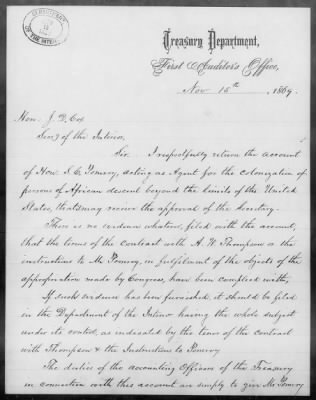 DEPARTMENT
OF THE INTERIOR
Treasury Department,
First Auditor's Office,
Nov 15th, 1869.
Hon. J. D. Cox
Secy of the Interior,
Sir. I respectfully return the account
of Hon. S. C. Pomroy, acting as Agent for the colonization of
persons of African descent beyond the limits of the United
States, that it may receive the approval of the Secretary.
There is no evidence whatever, filed with the account,
that the terms of the contract with A. W. Thompson or the
instructions to Mr Pomroy, in fulfilment of the objects of the
appropriation made by Congress, have been complied with,
If such evidence has been furnished, it should be filed
in the Department of the Interior having the whole subject
under its control, as indicated by the terms of the contract
with Thompson & the Instructions to Pomroy
The duties of the accounting Officers of the Treasury
in connection with this account are simply to give Mr Pomroy